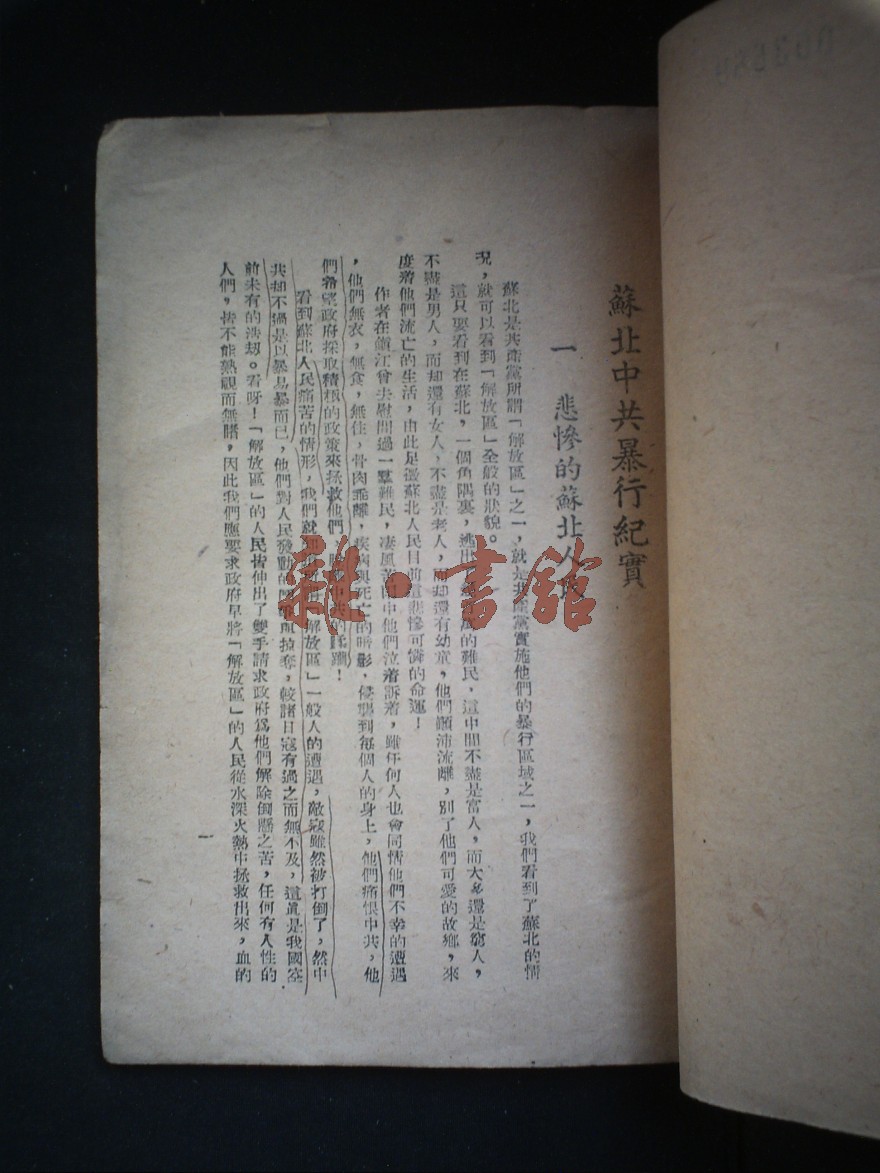 蘇北中共暴行紀實
一 悲慘的蘇北人民
蘇北是共產黨所謂「解放區」之一，就是共產黨實施他們的暴行區域之一，我們看到了蘇北的情
況，就可以看到「解放區」全般的狀貌。
這只要看到在蘇北，一個角隅裏，逃出的難民，這中間不盡是富人，而大多還是窮人，
不盡是男人，而却還有女人，不盡是老人，而却還有幼童，他們顛沛流離，別了他們可愛的故鄉，來
度着他們流亡的生活，由此足徵蘇北人民目前這悲慘可憐的命運！
作者在鎮江曾去慰問過一羣難民，凄風苦雨中他們泣着訴着，雖任何人也會同情他們不幸的遭遇
，他們無衣，無食，無住，骨肉乖離，疾病與死亡的暗影，侵襲到每個人的身上，他們痛恨中共，他
們希望政府採取積極的政策來拯救他們，中共的蹂躪！
看到蘇北人民痛苦的情形，我們就「解放區」一般人的遭遇，敵寇雖然被打倒了，然中
共却不過是以暴易暴而已，他們對人民發動的與掠奪，較諸日寇有過之而無不及，這真是我國空
前未有的浩刧。看呀！「解放區」的人民皆伸出了雙手請求政府爲他們解除倒懸之苦，任何有人性的
人們，皆不能熟視而無睹，因此我們應要求政府早將「解放區」的人民從水深火熱中拯救出來，血的
一
雜·書館